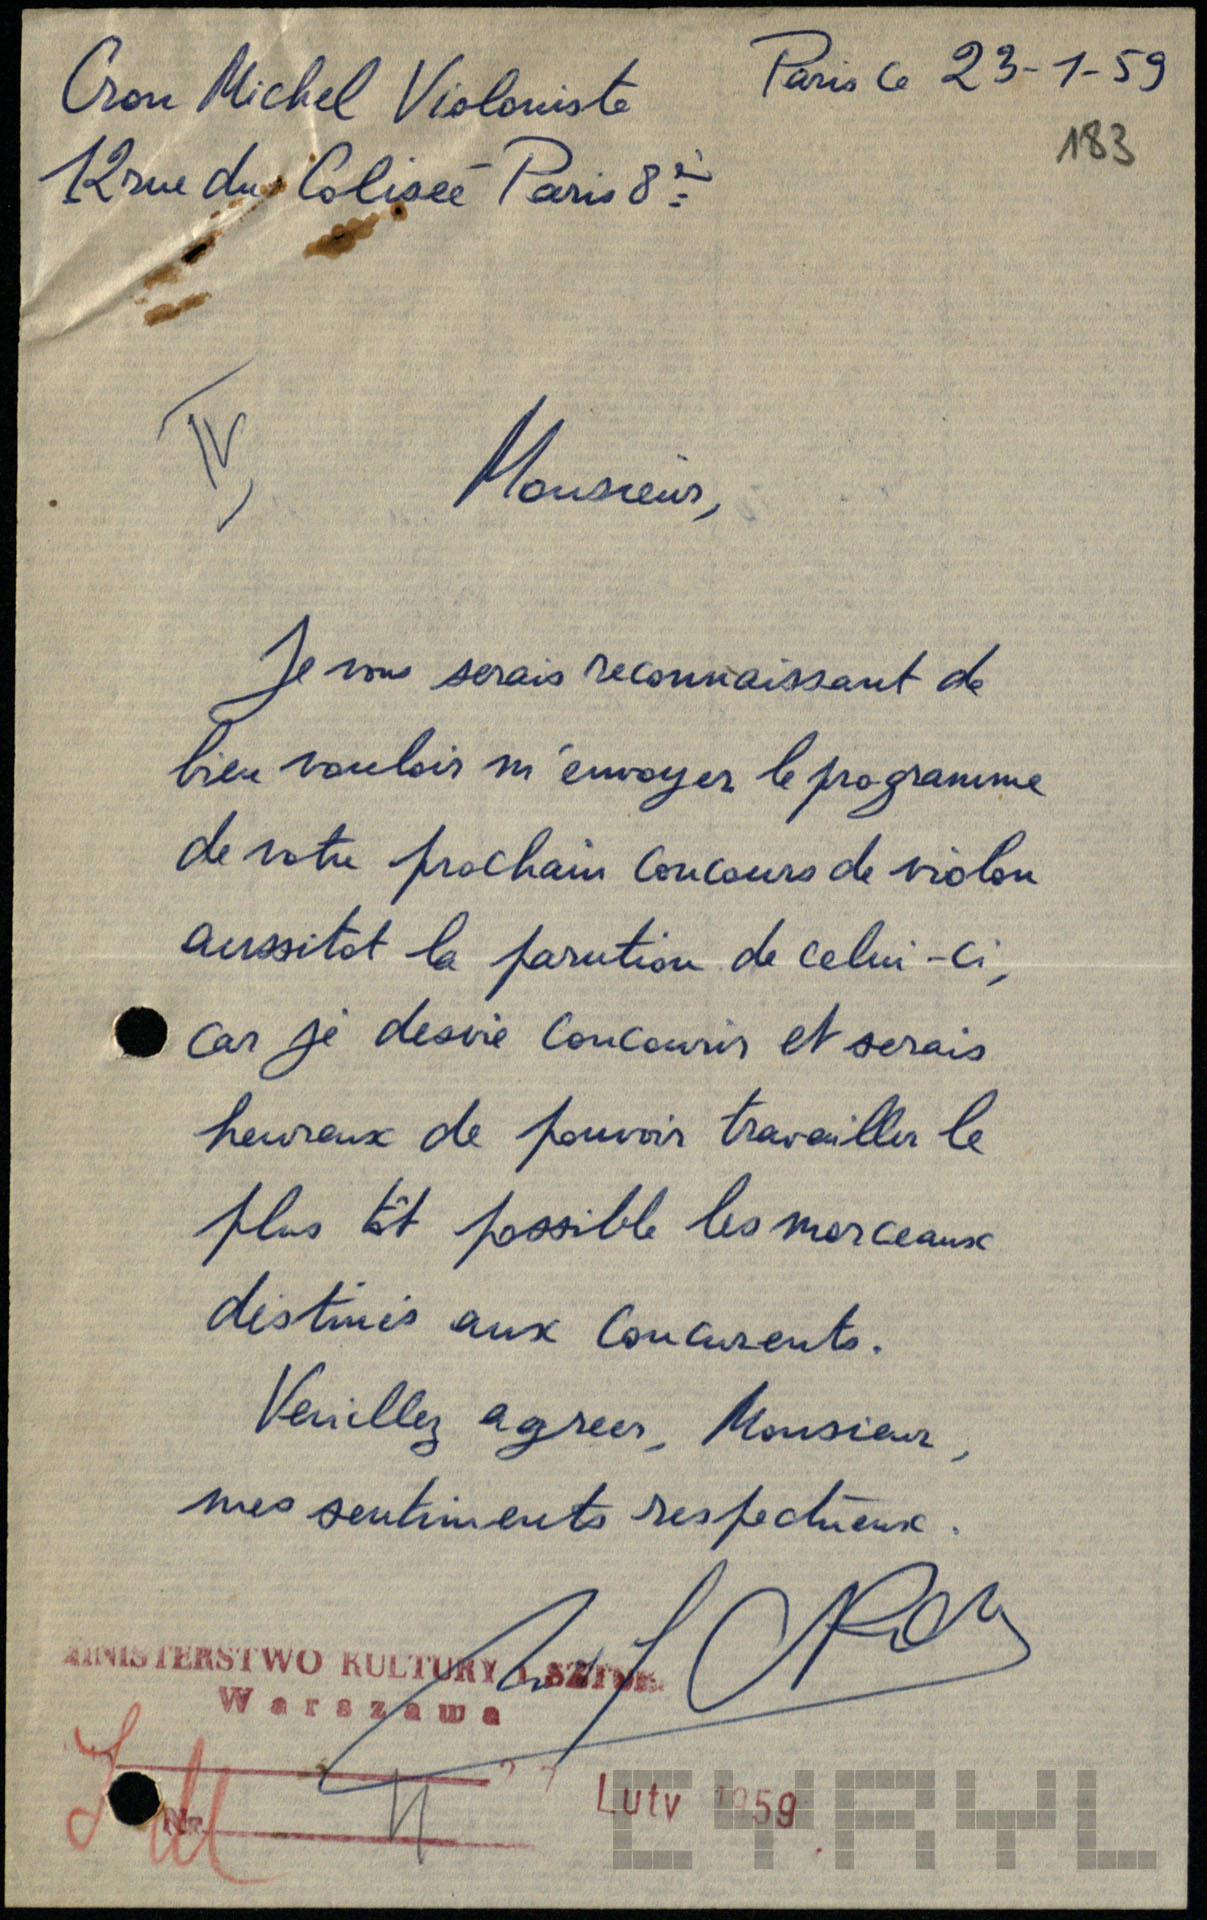 Cron Michel Violoniste
Paris le 23-1-59
183
12 rue du Colisée Paris 8è
IV
Monsieur,
Je vous serais reconnaissant de
bien vouloir m'envoyer le programme
de votre prochain concours de violon
aussitot la parution de celui-ci,
car je desire concourir et serais
heureux de pouvoir travailler le
plus tôt possible les morceaux
destinés aux concurents.
Veuillez agreer, Monsieur,
mes sentiments respectueux.
MINISTERSTWO KULTURY I SZTUKI
Warszawa
Lutv 1959
Nr.
CYRYL